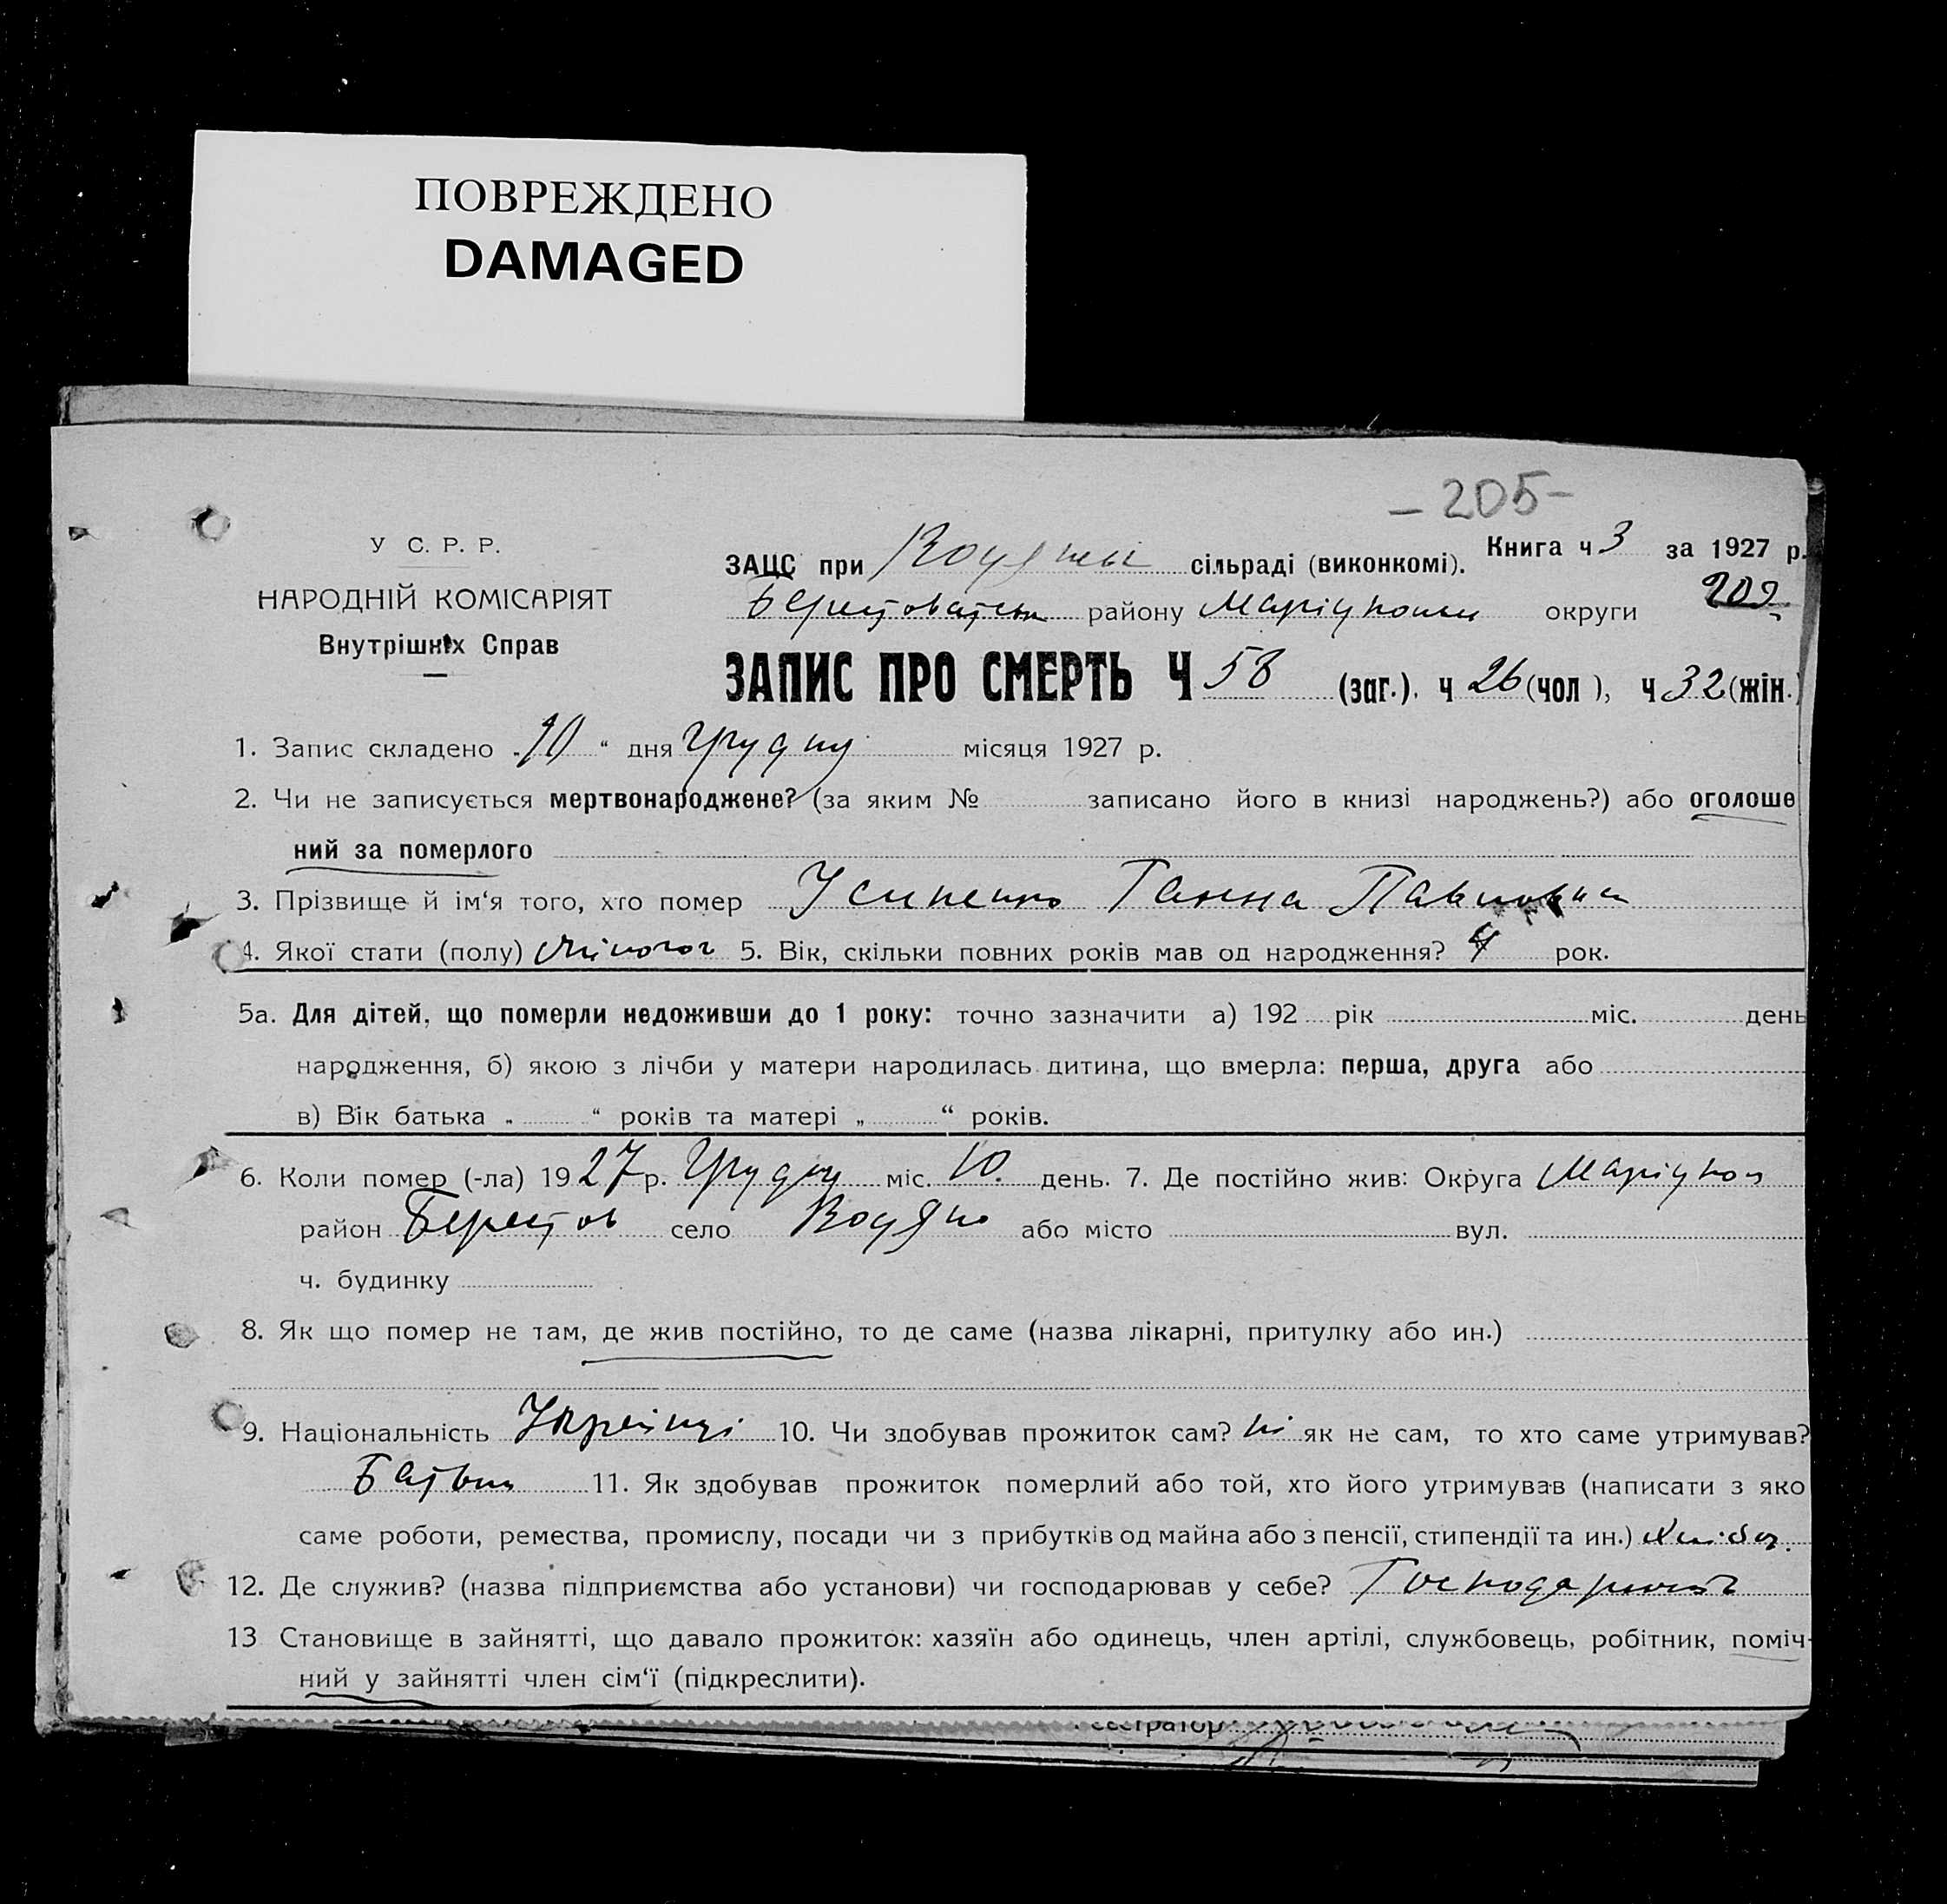 ПОВРЕЖДЕНО
DAMAGED
- 205 -
У С. Р. Р.
НАРОДНІЙ КОМІСАРІЯТ
Внутрішніх Справ
Книга ч 3 за 1927 р.
ЗАЦС при сільраді (виконкомі).
209
району округи
ЗАПИС ПРО СМЕРТЬ Ч 58 (заг.). ч 26 (чол ), ч 32 (жін.)
1. Запис складено „10“ дня Грудну місяця 1927 р.
2. Чи не записується мертвонароджене? (за яким № записано його в книзі народжень?) або оголоше
ний за померлого
3. Прізвище й ім‘я того, хто помер Усипенко Ганна Павловна
4. Якої стати (полу) жіночої 5. Вік, скільки повних років мав од народження? 4 рок.
5а. Для дітей, що померли недоживши до 1 року: точно зазначити а) 192 рік міс. день
народження, б) якою з лічби у матери народилась дитина, що вмерла: перша, друга або
в) Вік батька „ “ років та матері „ “ років.
6. Коли помер (-ла) 1927 р. Грудну міс. 10. день. 7. Де постійно жив: Округа Маріупол
район Берестов село Водяно або місто вул.
ч. будинку
8. Як що помер не там, де жив постійно, то де саме (назва лікарні, притулку або ин.)
9. Національність 10. Чи здобував прожиток сам? ні як не сам, то хто саме утримував?
Батьки 11. Як здобував прожиток померлий або той, хто його утримував (написати з яко
саме роботи, ремества, промислу, посади чи з прибутків од майна або з пенсії, стипендії та ин.)
12. Де служив? (назва підприємства або установи) чи господарював у себе?
13 Становище в зайнятті, що давало прожиток: хазяїн або одинець, член артілі, службовець, робітник, поміч-
ний у зайнятті член сім‘ї (підкреслити).